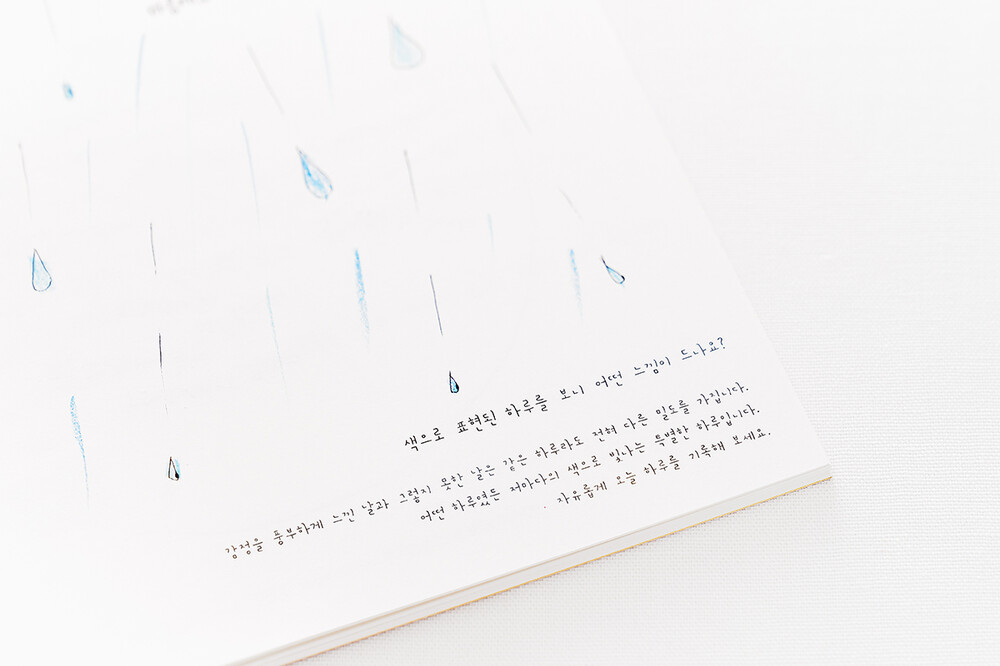 색으로 표현된 하루를 보니 어떤 느낌이 드나요?
감정을 풍부하게 느낀 날과 그렇지 못한 날은 같은 하루라도 전혀 다른 밀도를 가집니다.
어떤 하루였든 저마다의 색으로 빛나는 특별한 하루입니다.
자유롭게 오늘 하루를 기록해 보세요.